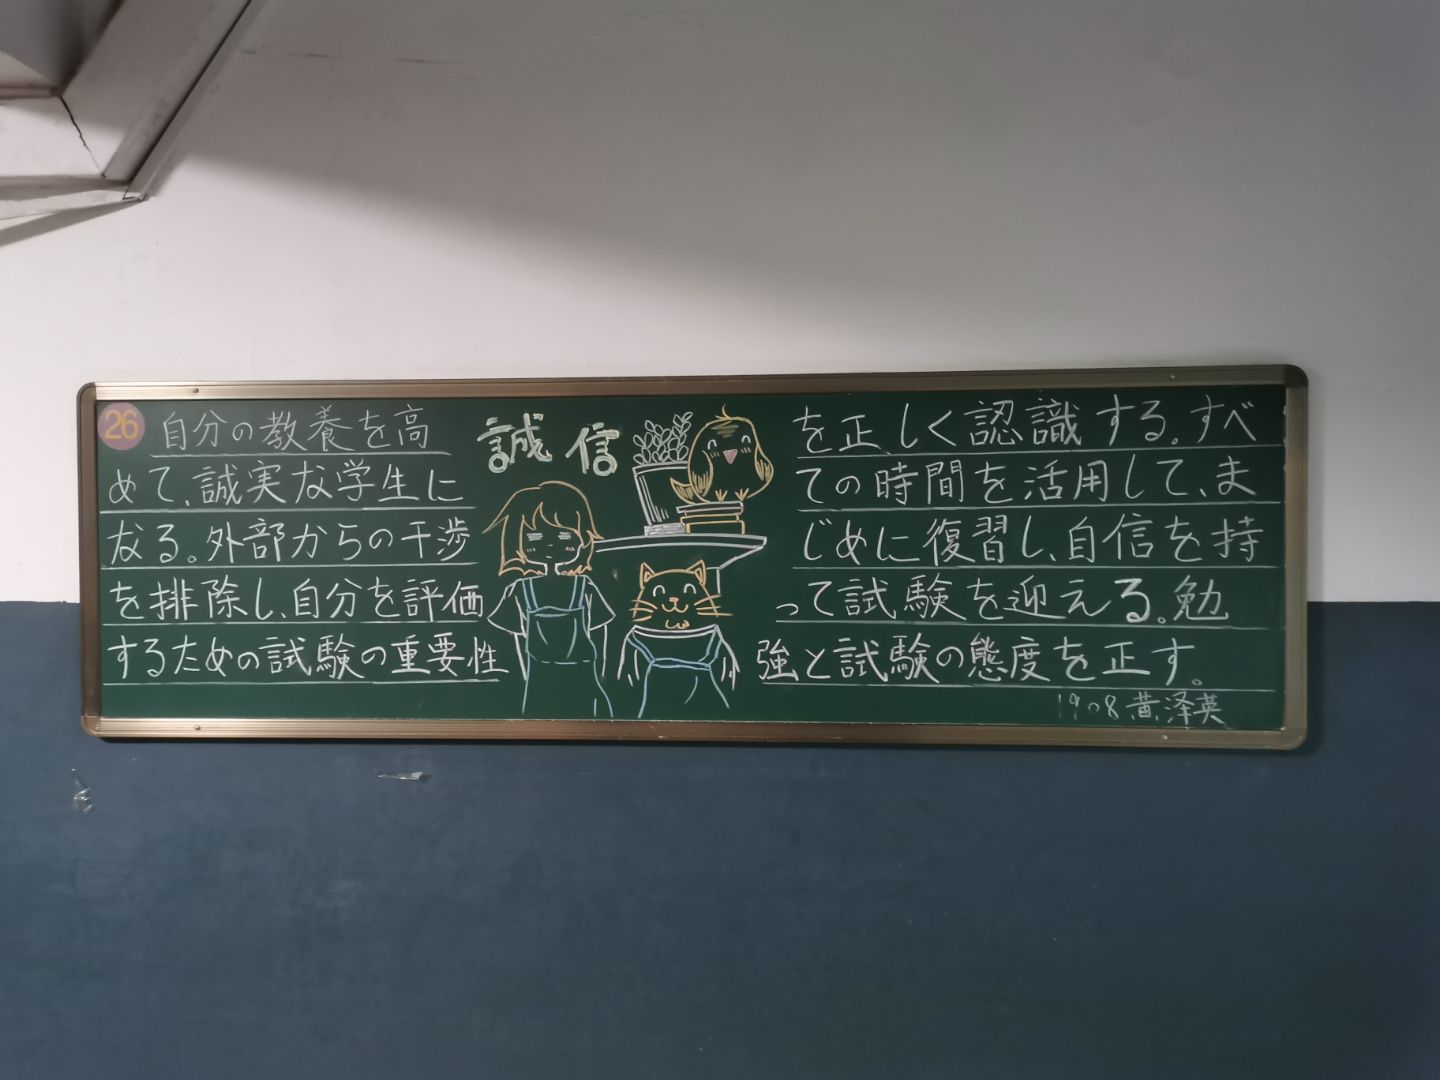 26
誠信
自分の教養を高
めて、誠実な学生に
なる。外部からの干渉
を排除し、自分を評価
するための試験の重要性
を正しく認識する。すべ
ての時間を活用して、ま
じめに復習し、自信を持
って試験を迎える。勉
強と試験の態度を正す。
1908黄泽英